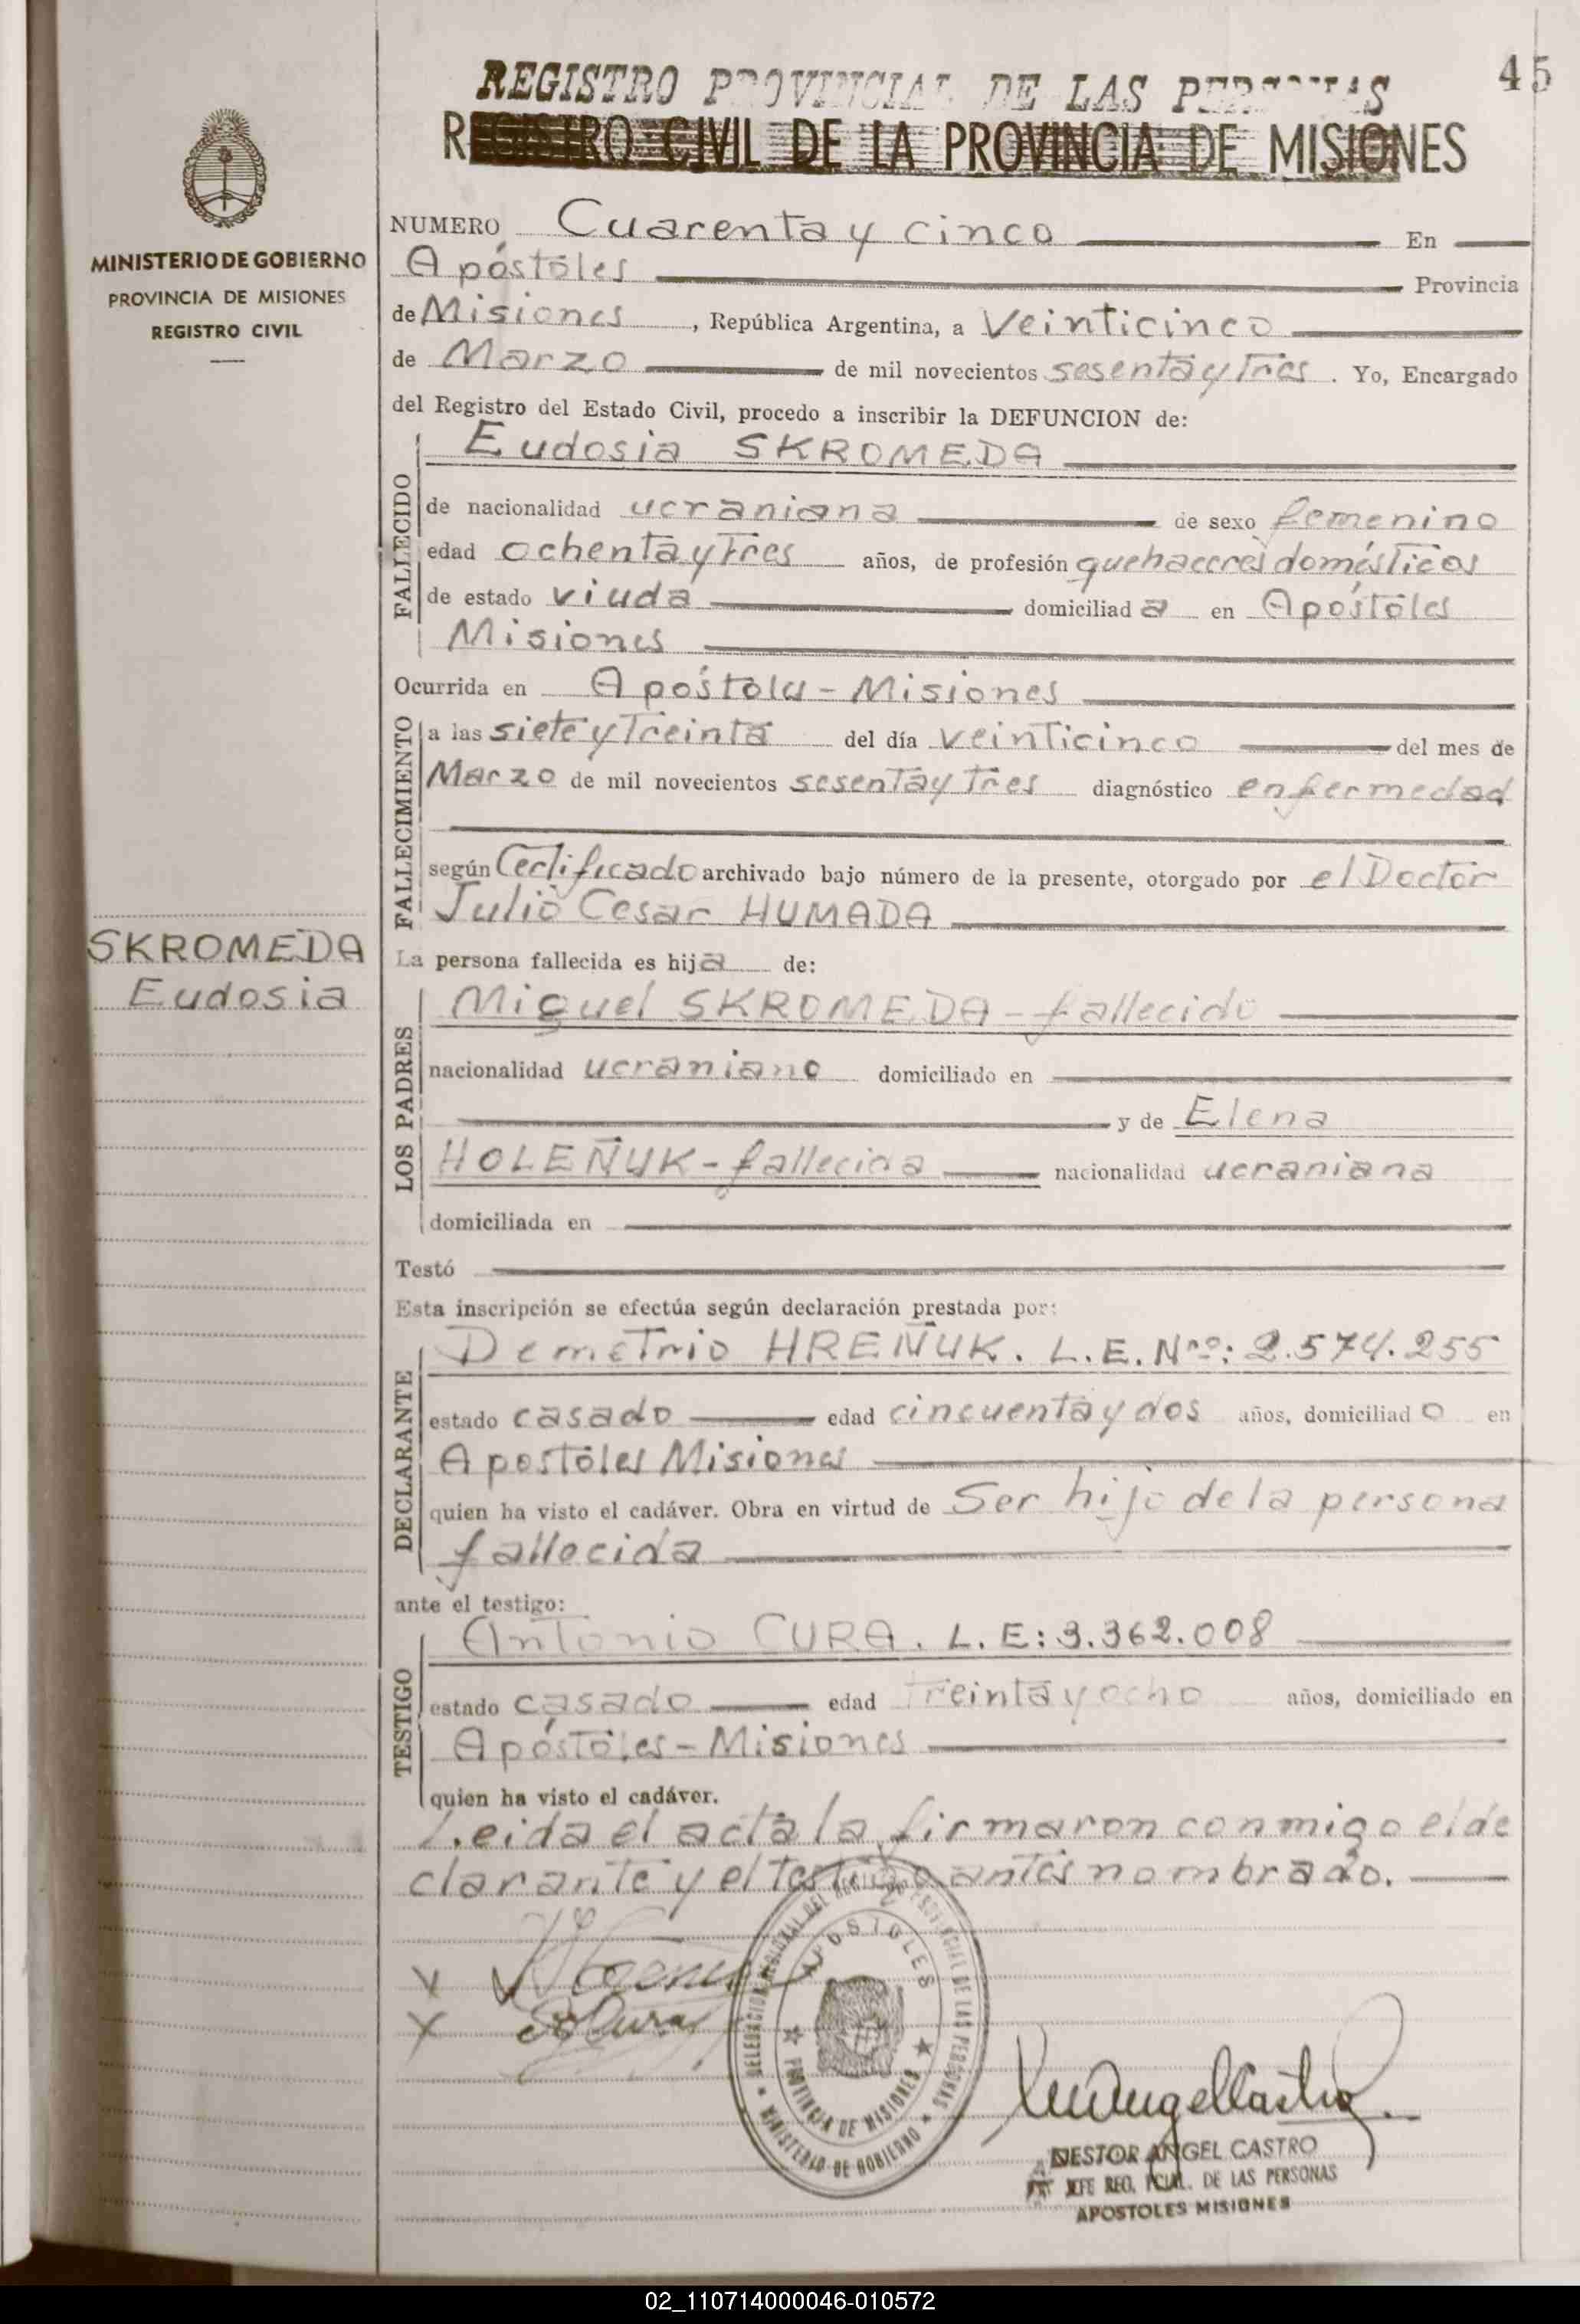 45
REGISTRO PROVINCIAL DE LAS PERSONAS
REGISTRO CIVIL DE LA PROVINCIA DE MISIONES
MINISTERIO DE GOBIERNO
PROVINCIA DE MISIONES
REGISTRO CIVIL
SKROMEDA
Eudosia
NUMERO Cuarenta y cinco En
Apóstoles Provincia
de Misiones, República Argentina, a Veinticinco
de Marzo de mil novecientos sesenta y tres. Yo, Encargado
del Registro del Estado Civil, procedo a inscribir la DEFUNCION de:
FALLECIDO
Eudosia SKROMEDA
de nacionalidad ucraniana de sexo femenino
edad ochenta y tres años, de profesión quehaceres domésticos
de estado viuda domiciliad a en Apóstoles
Misiones
Ocurrida en Apóstoles - Misiones
FALLECIMIENTO
a las siete y treinta del día veinticinco del mes de
Marzo de mil novecientos sesenta y tres diagnóstico enfermedad
según Certificado archivado bajo número de la presente, otorgado por el Doctor
Julio Cesar HUMADA
La persona fallecida es hija de:
LOS PADRES
Miguel SKROMEDA - fallecido
nacionalidad ucraniano domiciliado en
y de Elena
HOLEÑUK - fallecida nacionalidad ucraniana
domiciliada en
Testó
Esta inscripción se efectúa según declaración prestada por:
DECLARANTE
Demetrio HREÑUK. L.E. Nro: 2.574.255
estado casado edad cincuenta y dos años, domiciliad o en
Apostoles Misiones
quien ha visto el cadáver. Obra en virtud de Ser hijo de la persona
fallecida
ante el testigo:
TESTIGO
Antonio CURA. L.E: 3.362.008
estado casado edad treinta y ocho años, domiciliado en
Apóstoles - Misiones
quien ha visto el cadáver.
Leida el acta la firmaron conmigo el de
clarante y el testigo antes nombrado.
DELEGACION REGIONAL DEL REGISTRO PROVINCIAL DE LAS PERSONAS
MINISTERIO DE GOBIERNO
APOSTOLES
PROVINCIA DE MISIONES
NESTOR ANGEL CASTRO
JEFE REG. PCIAL. DE LAS PERSONAS
APOSTOLES MISIONES
02_110714000046-010572